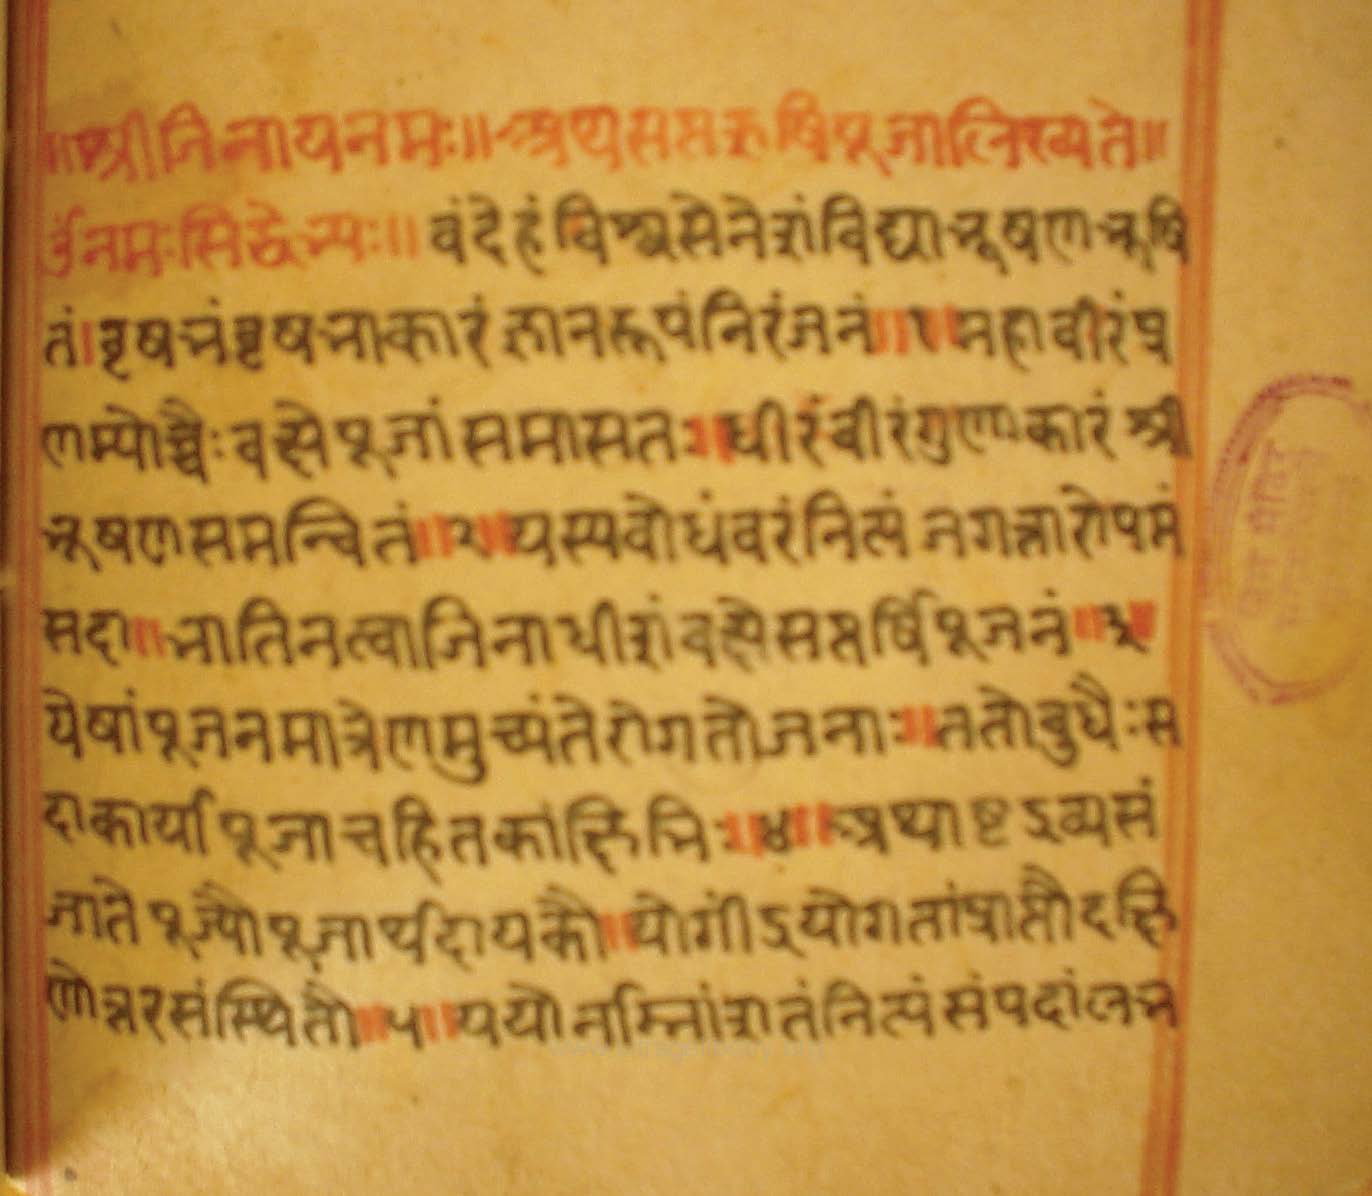 ॥श्रीजिनायनमः॥अथसप्तऋषिपूजालिख्यते॥
उँनमःसिद्धेभ्यः॥वंदेहंविश्वसेनेशंविद्याभूषणभूषि
तं।वृषभंवृषभाकारंज्ञानरूपंनिरंजनं॥१॥महावीरंप्र
णम्योच्चैःवक्ष्येपूजांसमासतः॥धीरंवीरंगुणाकारंश्री
भूषणसमन्वितं॥२॥यस्यबोधंवरंनित्यंजगन्नारोपमं
सदा॥भातिनत्वाजिनाधीशंवक्ष्येसप्तर्षिपूजनं॥३॥
येषांपूजनमात्रेणमुच्यंतेरोगतोजनाः॥ततोबुधैःस
दाकार्यापूजाचहितकांक्षिभिः॥४॥अथाष्टऽव्यसं
जातेपूज्यौपूजार्थदायकौ॥योगीऽयोगतांप्राप्तौदक्षि
णोत्तरसंस्थितौ॥५॥ययोनमिंशतंनित्यंसंपदांलभ